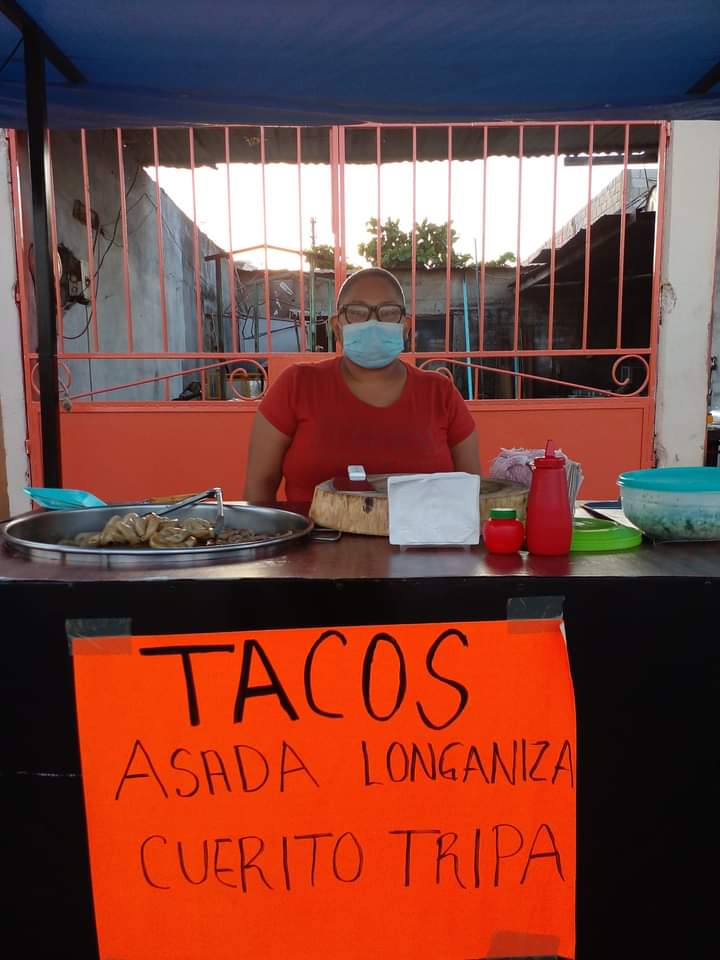 TACOS
ASADA LONGANIZA
CUERITO TRIPA